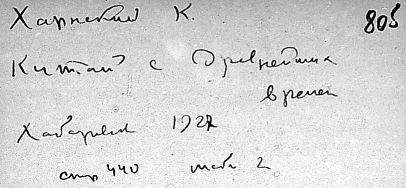 Харнский К. 805
Китай с древнейших
времен
Хабаровск 1927
стр 440 табл 2